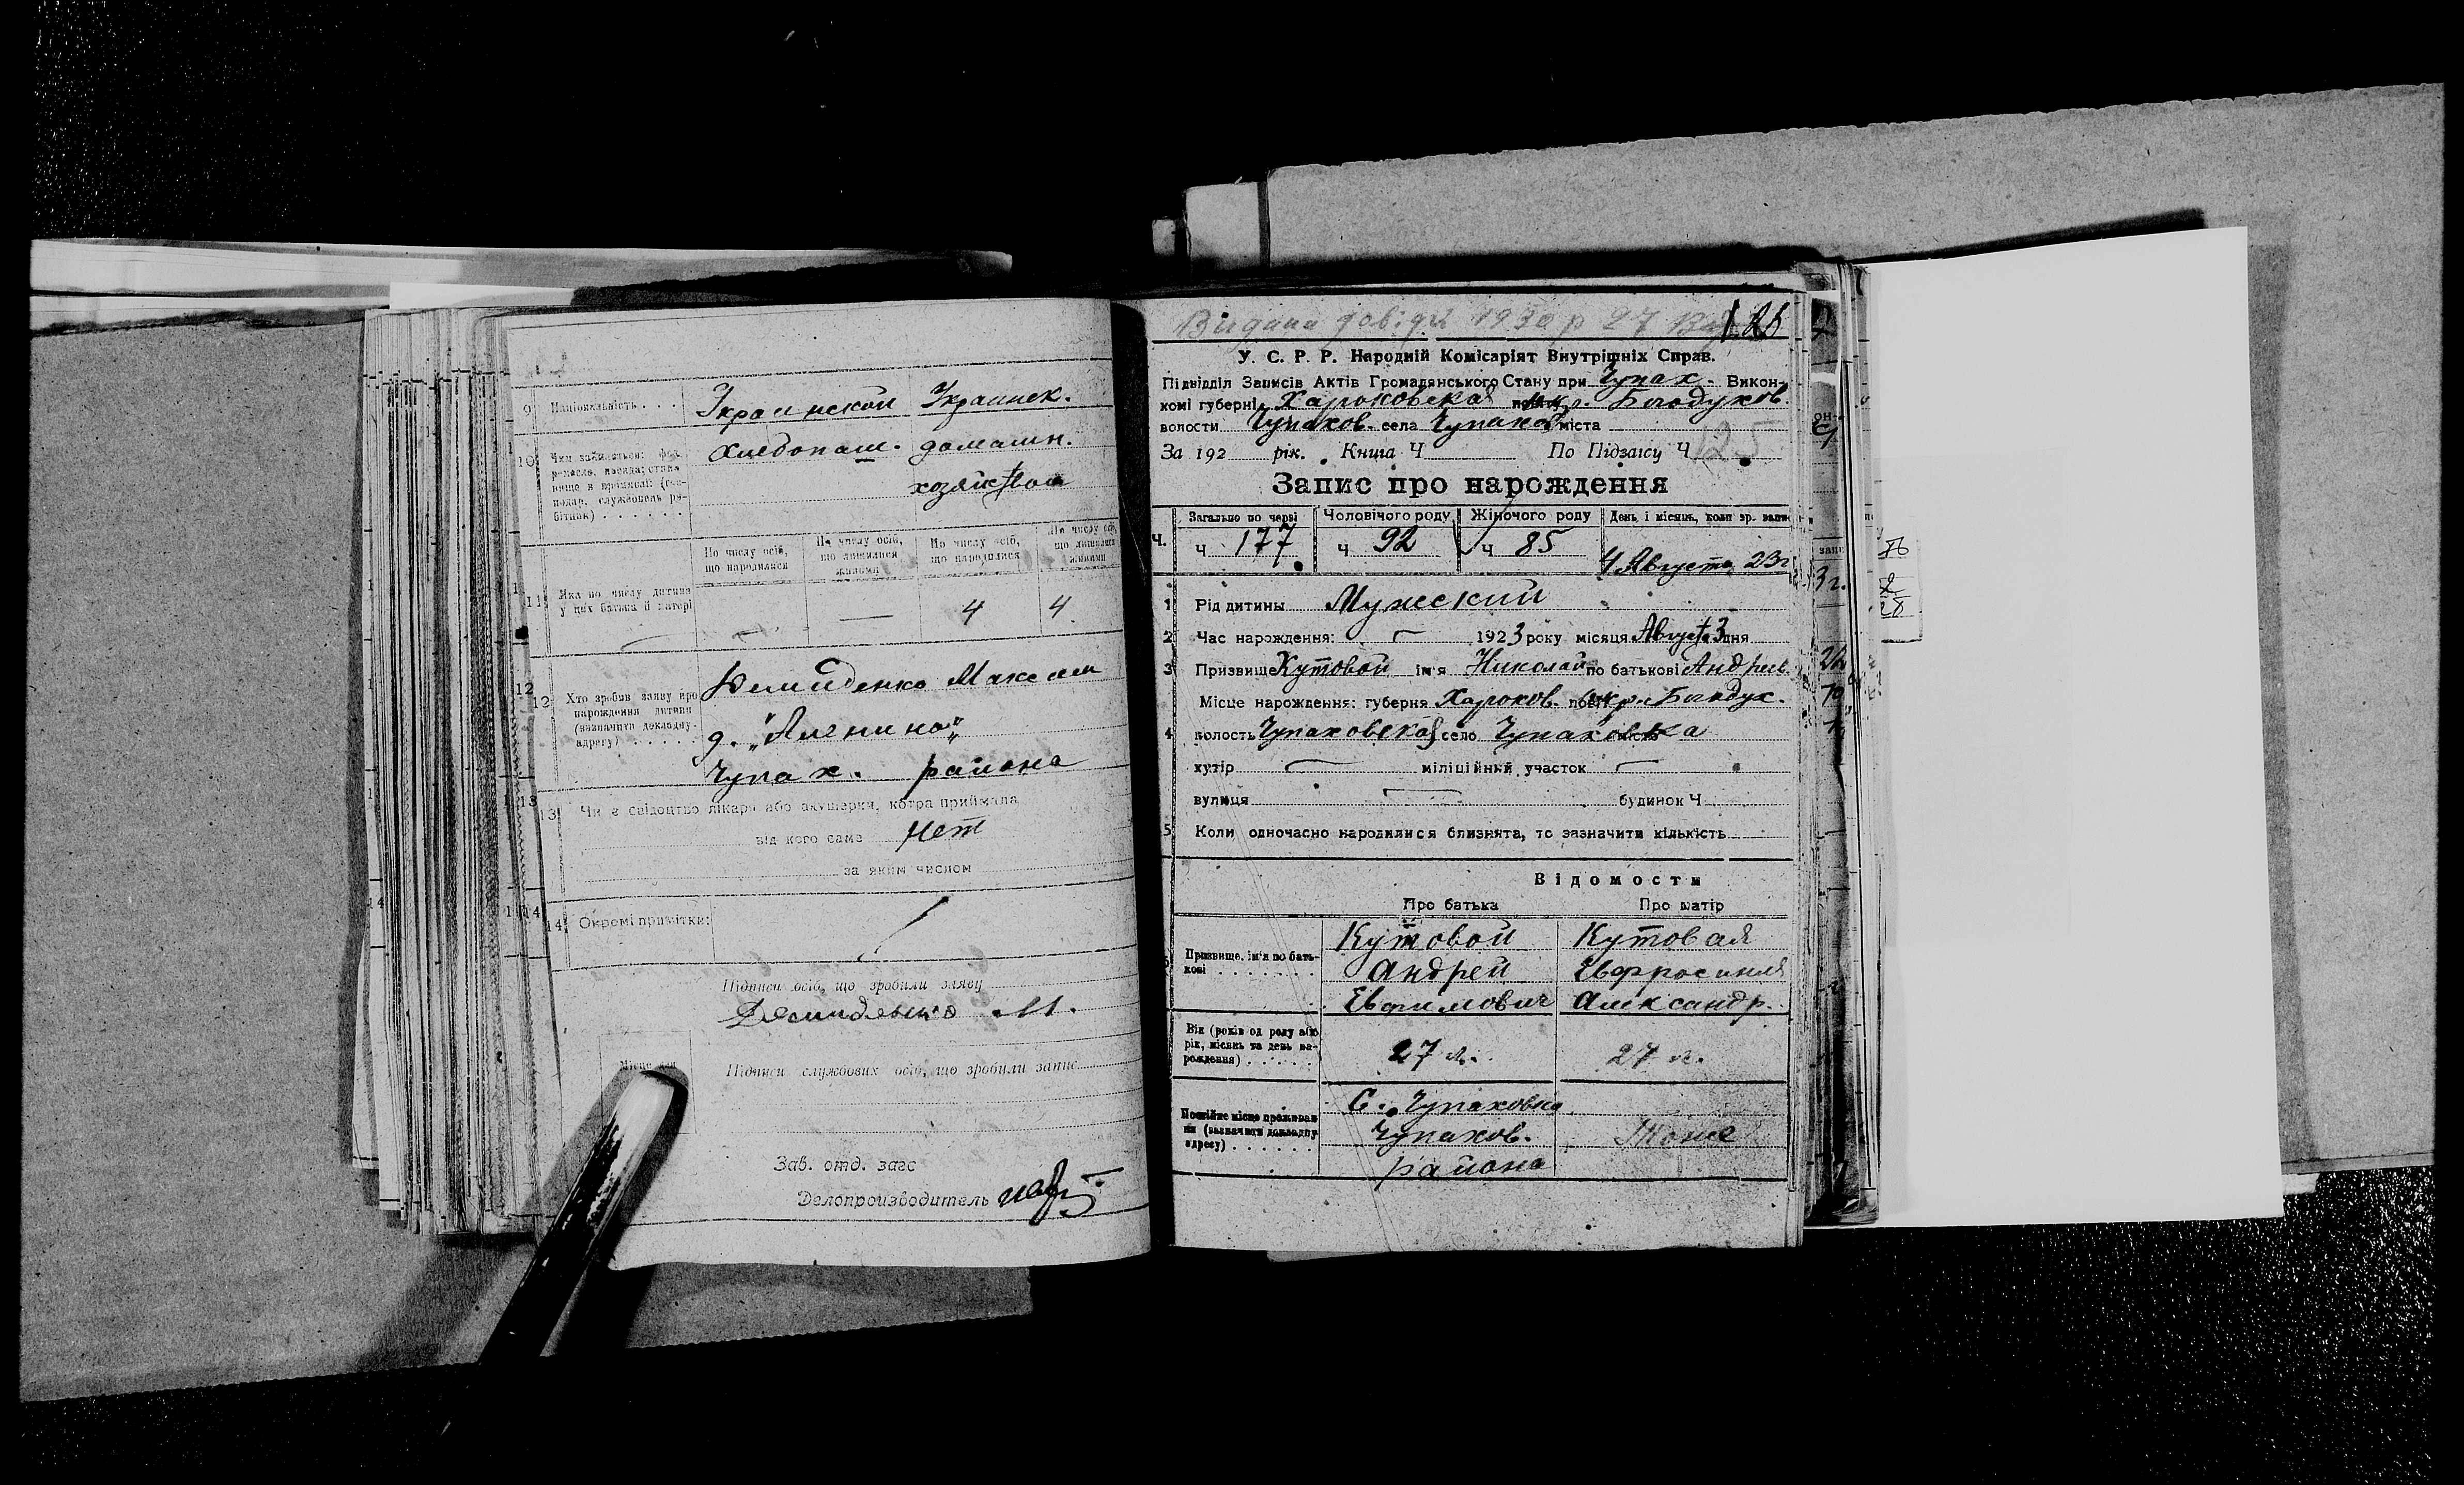 9 Національність . . . Украинской Украинск.
10 Чим займається: фах, ремесло, посада; становище в промислі: (господар, службовець робітник) . . . . . . Хлебопаш. домашн.
хозяйство
По числу осіб, що народилися По числу осіб, що лишилися живими По числу осіб, що народилися По числу осіб, що лишилися живими
11 Яка по числу дитина у цих батька й матері — 4 4.
12 Хто зробив заяву про нарождення дитини (зазначити докладну адресу) . . . . . Демиденко Максим
д. "
Чупах. района
13 Чи є свідоцтво лікаря або акушерки, котра приймала
від кого саме Нет
за яким числом
14 Окремі примітки:
Підписи осіб, що зробили заяву
Демиденко М.
Місце
Підписи службових осіб, що зробили запис
Зав. отд. загс
Делопроизводитель
Видана довідка 1930 р 27 125
У. С. Р. Р. Народній Комісаріят Внутрішніх Справ.
Підвідділ Записів Актів Громадянського Стану при Чупах. Викон-
комі губерні Харьковская окр. Богодухов
волости Чупахов. села Чупаховка міста
За 192 рік. Книга Ч По Підзагсу Ч 125
Запис про нарождення
Загально по черзі Чоловічого роду Жіночого роду День і місяць, коли зр. запис
Ч. Ч 177 Ч 92 Ч 85 4 Августа 23г
1 Рід дитини Мужский
2 Час нарождення: — 1923 року місяця Август 3 дня
3 Призвище Кутовой ім'я Николай по батькові Андреев.
4 Місце нарождення: губерня Харьков. повіт окр. Богодух.
волость Чупаховская село Чупаховка
хутір — міліційний участок —
вулиця — будинок Ч
5 Коли одночасно народилися близнята, то зазначити кількість
Відомости
Про батька Про матір
6 Призвище, ім'я по батькові . . . . . . . Кутовой Кутовая
Андрей Евфросиния
Евфимович Александр.
Вік (років од роду або рік, місяць та день нарождення) . . . . . . 27 л. 27 л.
Постійне місце проживання (зазначити докладну адресу) . . . . . . С. Чупаховка
Чупахов. Тоже
района